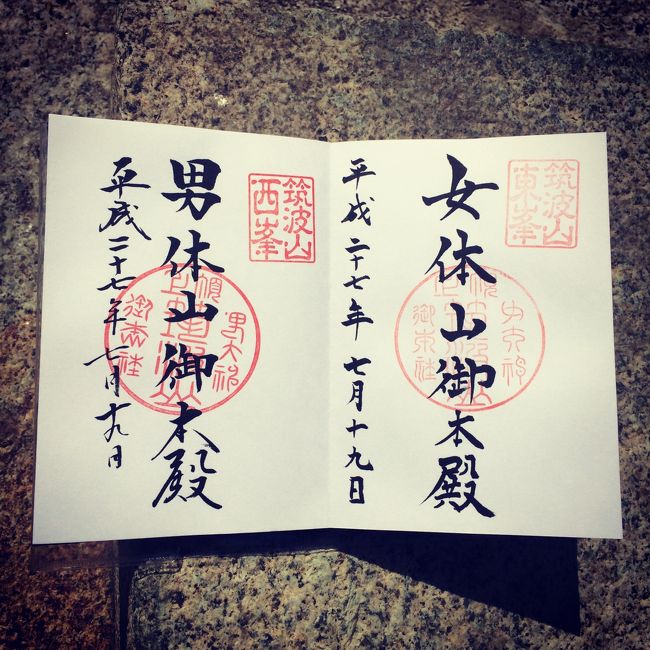 筑波山
東峯
女体山御本殿
平成二十七年 七月十九日
筑波山
西峯
男体山御本殿
平成二十七年 七月十九日